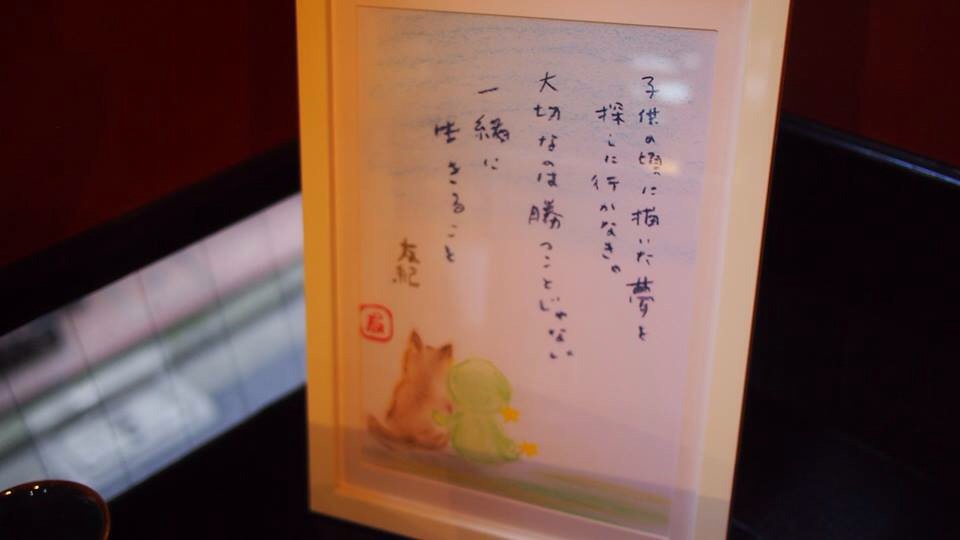 子供の頃に描いた夢を
探しに行かなきゃ
大切なのは勝つことじゃない
一緒に
生きること
友紀